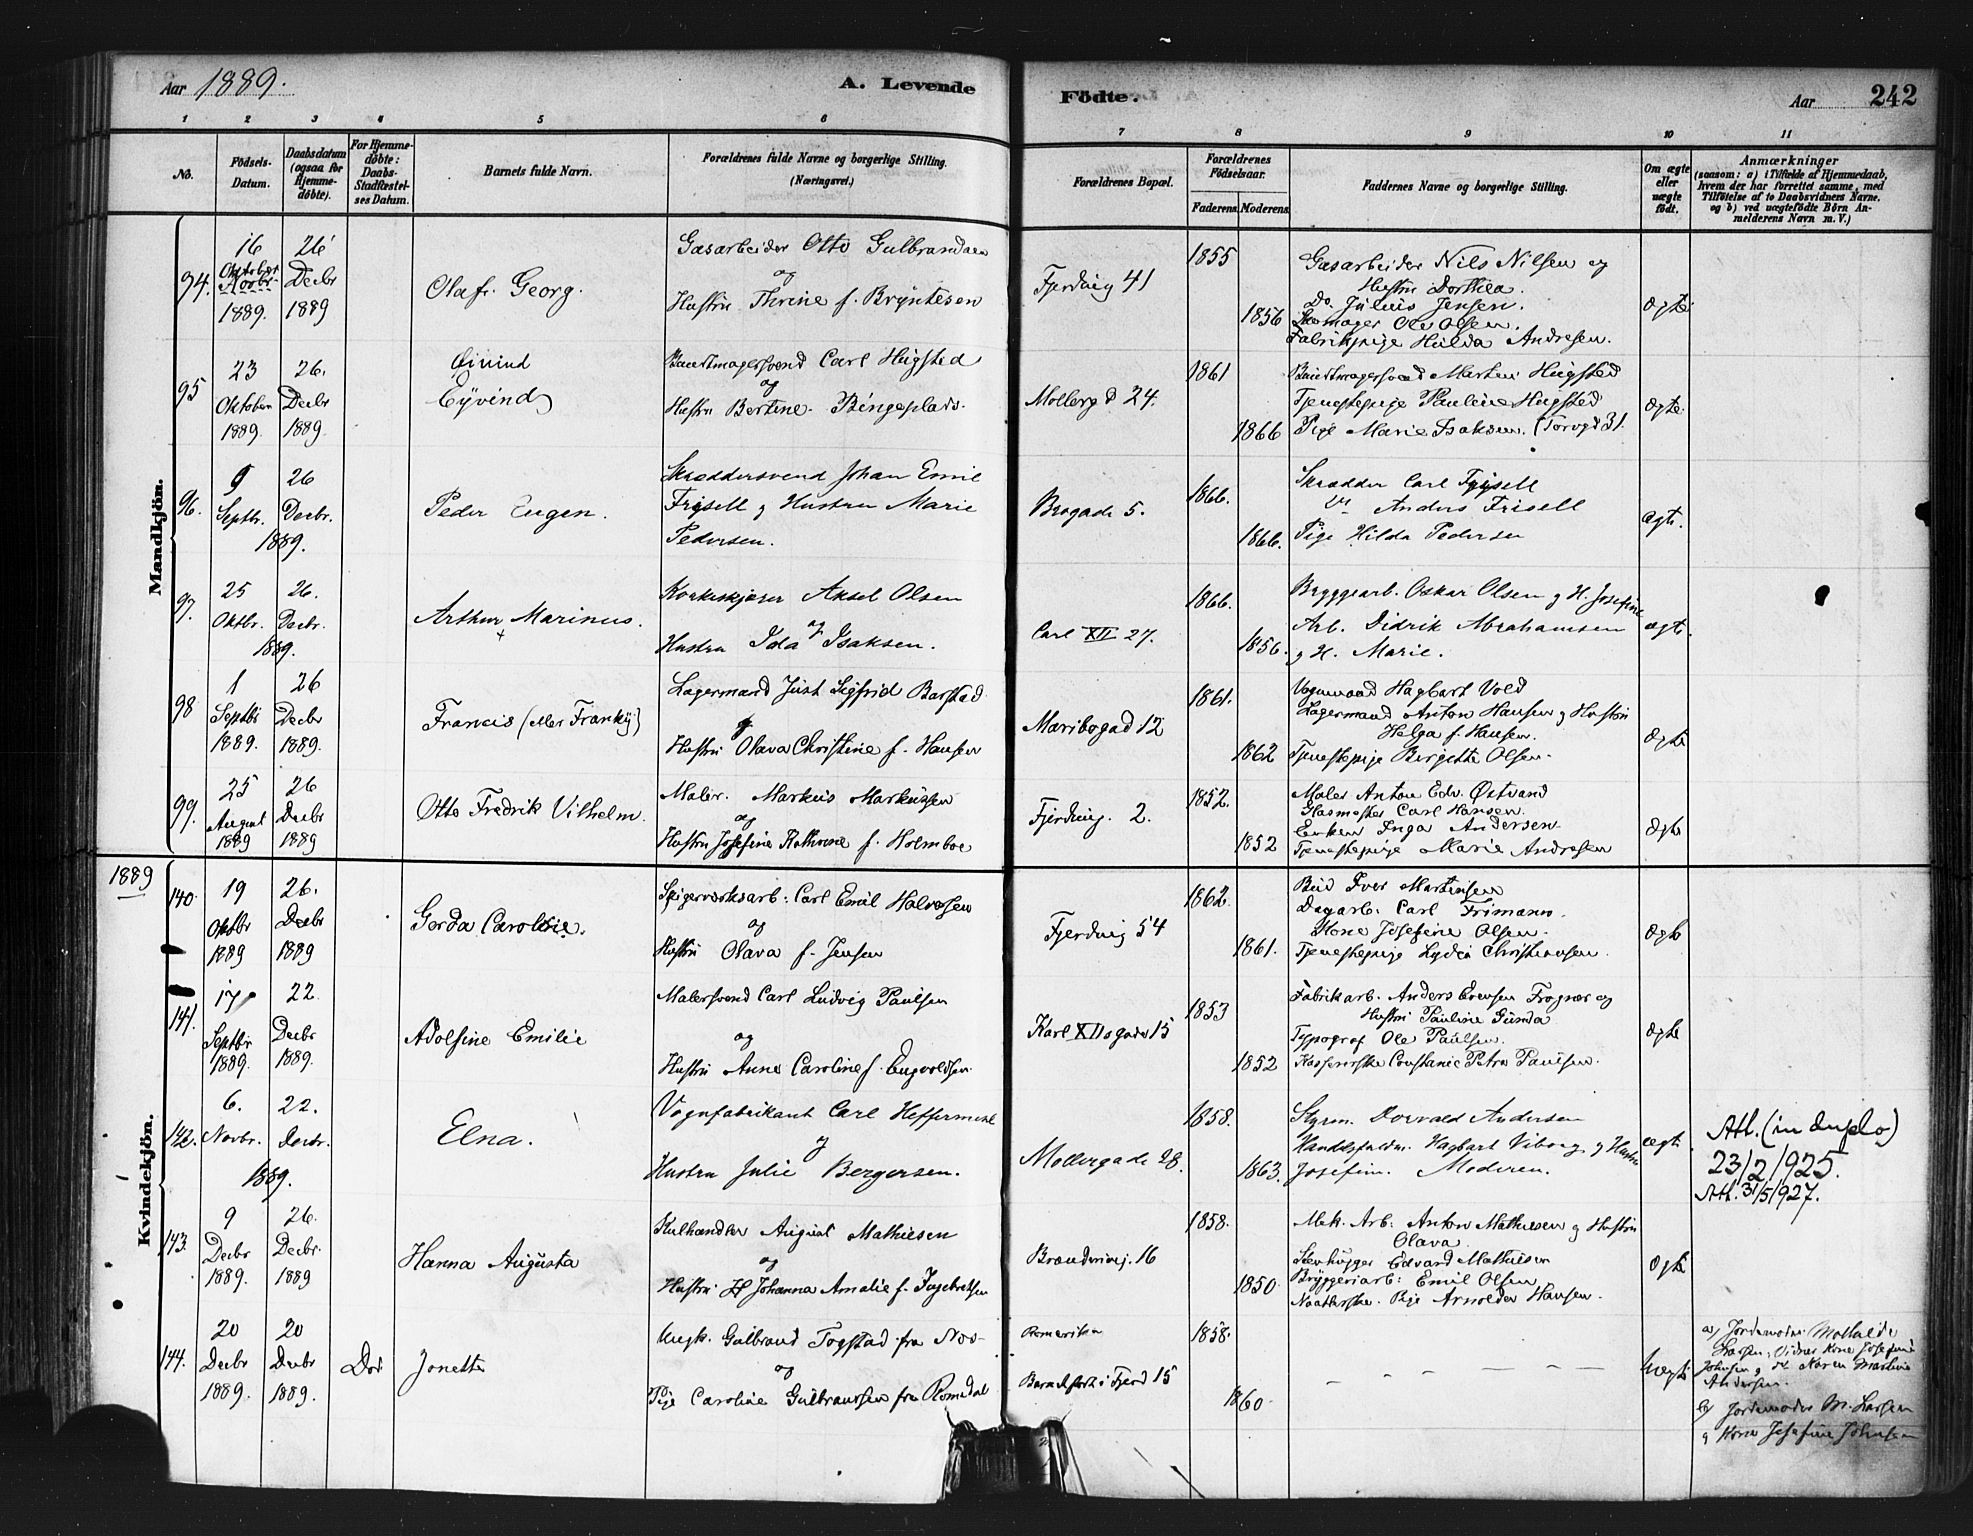 Aar 1889. A. Levende Födte. Aar 242
1 2 3 4 5 6 7 8 9 10 11
No.
Födsels-
Datum.
Daabsdatum
(ogsaa for
Hjemme-
döbte).
For Hjemme-
döbte:
Daabs-
Stadfæstel-
ses Datum.
Barnets fulde Navn.
Forældrenes fulde Navne og borgerlige Stilling.
(Næringsvei.)
Forældrenes Bopæl.
Forældrenes
Födselsaar.
Faderens. Moderens.
Faddernes Navne og borgerlige Stilling.
Om ægte
eller
uægte
födt.
Anmærkninger
(saasom: a) i Tilfælde af Hjemmedaab,
hvem der har forrettet samme, med
Tilföielse af to Daabsvidners Navne.
og b) ved uægtefödte Börn An-
melderens Navn m. V.)
Mandkjön.
94.
16
Oktober
Novbr.
1889.
26
Decbr
1889
Olaf Georg.
Gasarbeider Otto Gulbrandsen
og
Hustru Thrine f. Bryntesen
Fjerding 41
1855
1856
Gasarbeider Nils Nilsen og
Hustru Dorthea.
Do. Julius Jensen.
Skomager Ole Olsen.
Fabrikpige Hulda Andresen.
ægte
95
23
Oktober
1889.
26.
Decbr
1889.
Øivind
Eyvind
Buntmagersvend Carl Hugsted
og
Hustru Bertine Bingeplads.
Mollergd 24.
1861
1866
Buntmagersvend Marten Hugsted
Tjenestepige Pauline Hugsted
Pige Marie Isaksen. (Torvgd 31.
ægte
96.
9
Septbr.
26
Decbr.
1889.
Peder Eugen.
Skræddersvend Johan Emil
Frisell og Hustru Marie
Pedersen.
Brogade 5.
1866.
1866.
Skrædder Carl Frisell
Anders Frisell
Pige Hilda Pedersen
ægte.
97.
25
Oktbr.
26.
Decbr.
1889.
Arthur Marinus.
Aksel Olsen
og
Hustru Ida Isaksen.
Carl XII 27.
1866.
1856.
Bryggearb. Oskar Olsen og H. Josefine
Arb. Didrik Abrahamsen
og H. Marie.
ægte.
98
1
Septbr
1889.
26
Decbr
1889.
Francis (eller Franky)
Lagermand Just Sigfrid Barstad
og
Hustru Olava Christine f. Hansen
Maribogad 12
1861.
1862
Vognmand Hagbart Vold
Lagermand Anton Hansen og Hustru
Helga f. Hansen.
Tjenestepige Birgitte Olsen.
ægte
99.
25
August
1889
26
Decbr
1889
Otto Fredrik Vilhelm.
Maler. Markus Markussen
og
Hustru Josefine Kathrine f. Holmboe
Fjerding. 2.
1852.
1852
Maler Anton Edv. Østvand
Glasmester Carl Hansen.
Enken Inga Andersen
Tjenestepige Marie Andresen
ægte
1889
Kvindekjön.
140.
19
Oktbr
1889
26.
Decbr
1889
Gerda Caroline.
Spigerverksarb: Carl Emil Halvorsen
og
Hustru Olava f. Jensen
Fjerding 54
1862.
1861.
Bud Iver Martinsen
Dagarb. Carl Frimann.
Kone Josefine Olsen.
Tjenestepige Lydia Christiansen.
ægte
141.
17
Septbr
1889.
22.
Decbr
1889.
Adolfine Emilie
Malersvend Carl Ludvig Paulsen
og
Hustru Anne Caroline f. Engvoldsen.
Karl XIIs gade 15
1853
1852
Fabrikarb. Anders Evensen Frogner og
Hustru Pauline Gunda
Typograf Ole Paulsen.
Kassererske Constance Petra Paulsen.
ægte
142.
6.
Novbr.
22.
Decbr.
1889.
Elna.
Vognfabrikant Carl Heffermehl
og
Hustru Julie Bergersen.
Mollergade 28.
1858.
1863.
Styrm. Dorvald Andersen
Hagbart Viborg og Hustru
Josefine. Moderen.
ægte.
Att. (in duplo)
23/2 1925.
Att. 31/5 1927.
143.
9
Decbr
1889.
26.
Decbr.
1889
Hanna Augusta
Kulhandler August Mathiesen
og
Hustru H Johanna Amalie f. Ingebretsen
Brænderivej. 16
1858.
1850.
Mek. Arb: Anton Mathiesen og Hustru
Olava.
Stenhugger Edvard Mathiesen
Bryggeriarb: Emil Olsen
Pige Arnolda Hansen.
ægte
144.
20
Decbr
1889.
20
Decbr
1889.
Dod
Jonette
Ungk. Gulbrand Togstad fra Nes-
og
Pige Caroline Gulbrandsen fra Romedal
Romerike
Barnefort i Fjerd 15
1858.
1860.
uægte
a) Jordemoder Mathilde
Larsen, Vidner Kone Josefine
Johnsen og do. Karen Martine
Andersen.
b) Jordemoder M. Larsen
og Kone Josefine Johnsen